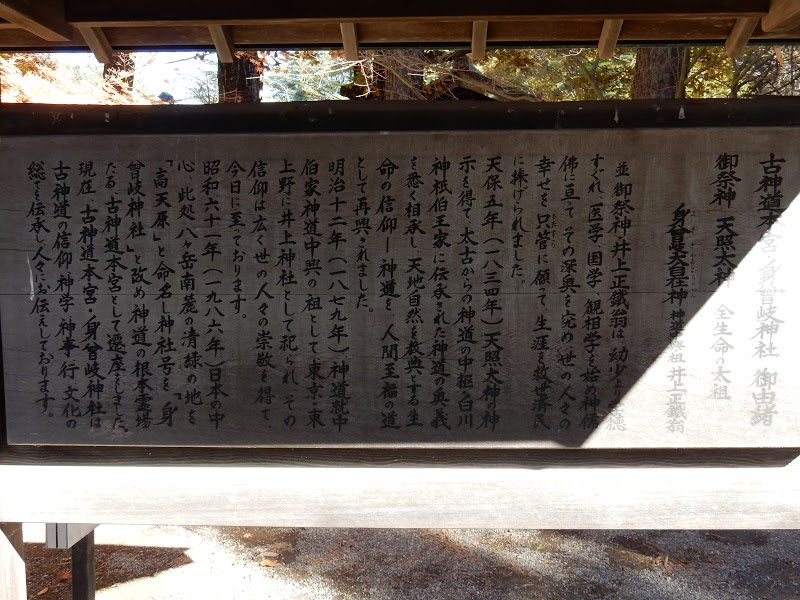 古神道本宮・身曾岐神社 御由緒
御祭神 天照太神 全生命の太祖
身曾岐自在神 神道興祖 井上正鐵翁
並 御祭神・井上正鐵翁は 幼少より
すぐれ、医学・国学・観相学を始め神儒
佛に亘って その深奥を究め 世の人々の
幸せを只管に願って、生涯を救世済民
に捧げられました。
天保五年(一八三四年)天照太神の神
示を得て、太古からの神道の中枢・白川
神祇伯王家に伝承された神道の奥義
を悉く相承し、天地自然を教典とする生
命の信仰ー神道を 人間至福の道
として再興されました。
明治十二年(一八七九年)神道就中
伯家神道中興の祖として 東京・東
上野に井上神社として祀られ、その
信仰は広く世の人々の崇敬を得て、
今日に至っております。
昭和六十一年(一九八六年)日本の中
心、此処八ヶ岳南麓の清緑の地を
「高天原」と命名し神社号を「身
曾岐神社」と改め 神道の根本霊場
たる 古神道本宮として遷座しました。
現在、古神道本宮・身曾岐神社は
古神道の信仰・神学・神事・行・文化の
総てを伝承し人々にお伝えしております。